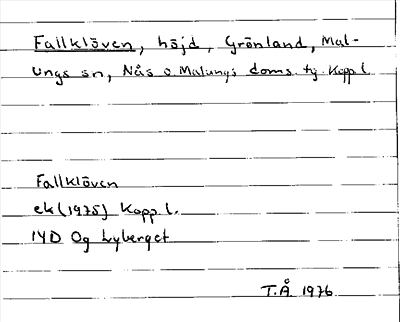 Fallklöven, höjd, Grönland, Mal-
ungs sn, Nås o. Malungs doms. tj. Kopp. l.
Fallklöven
ek (1975) Kopp. l.
14D Og Lyberget
T.Å. 1976